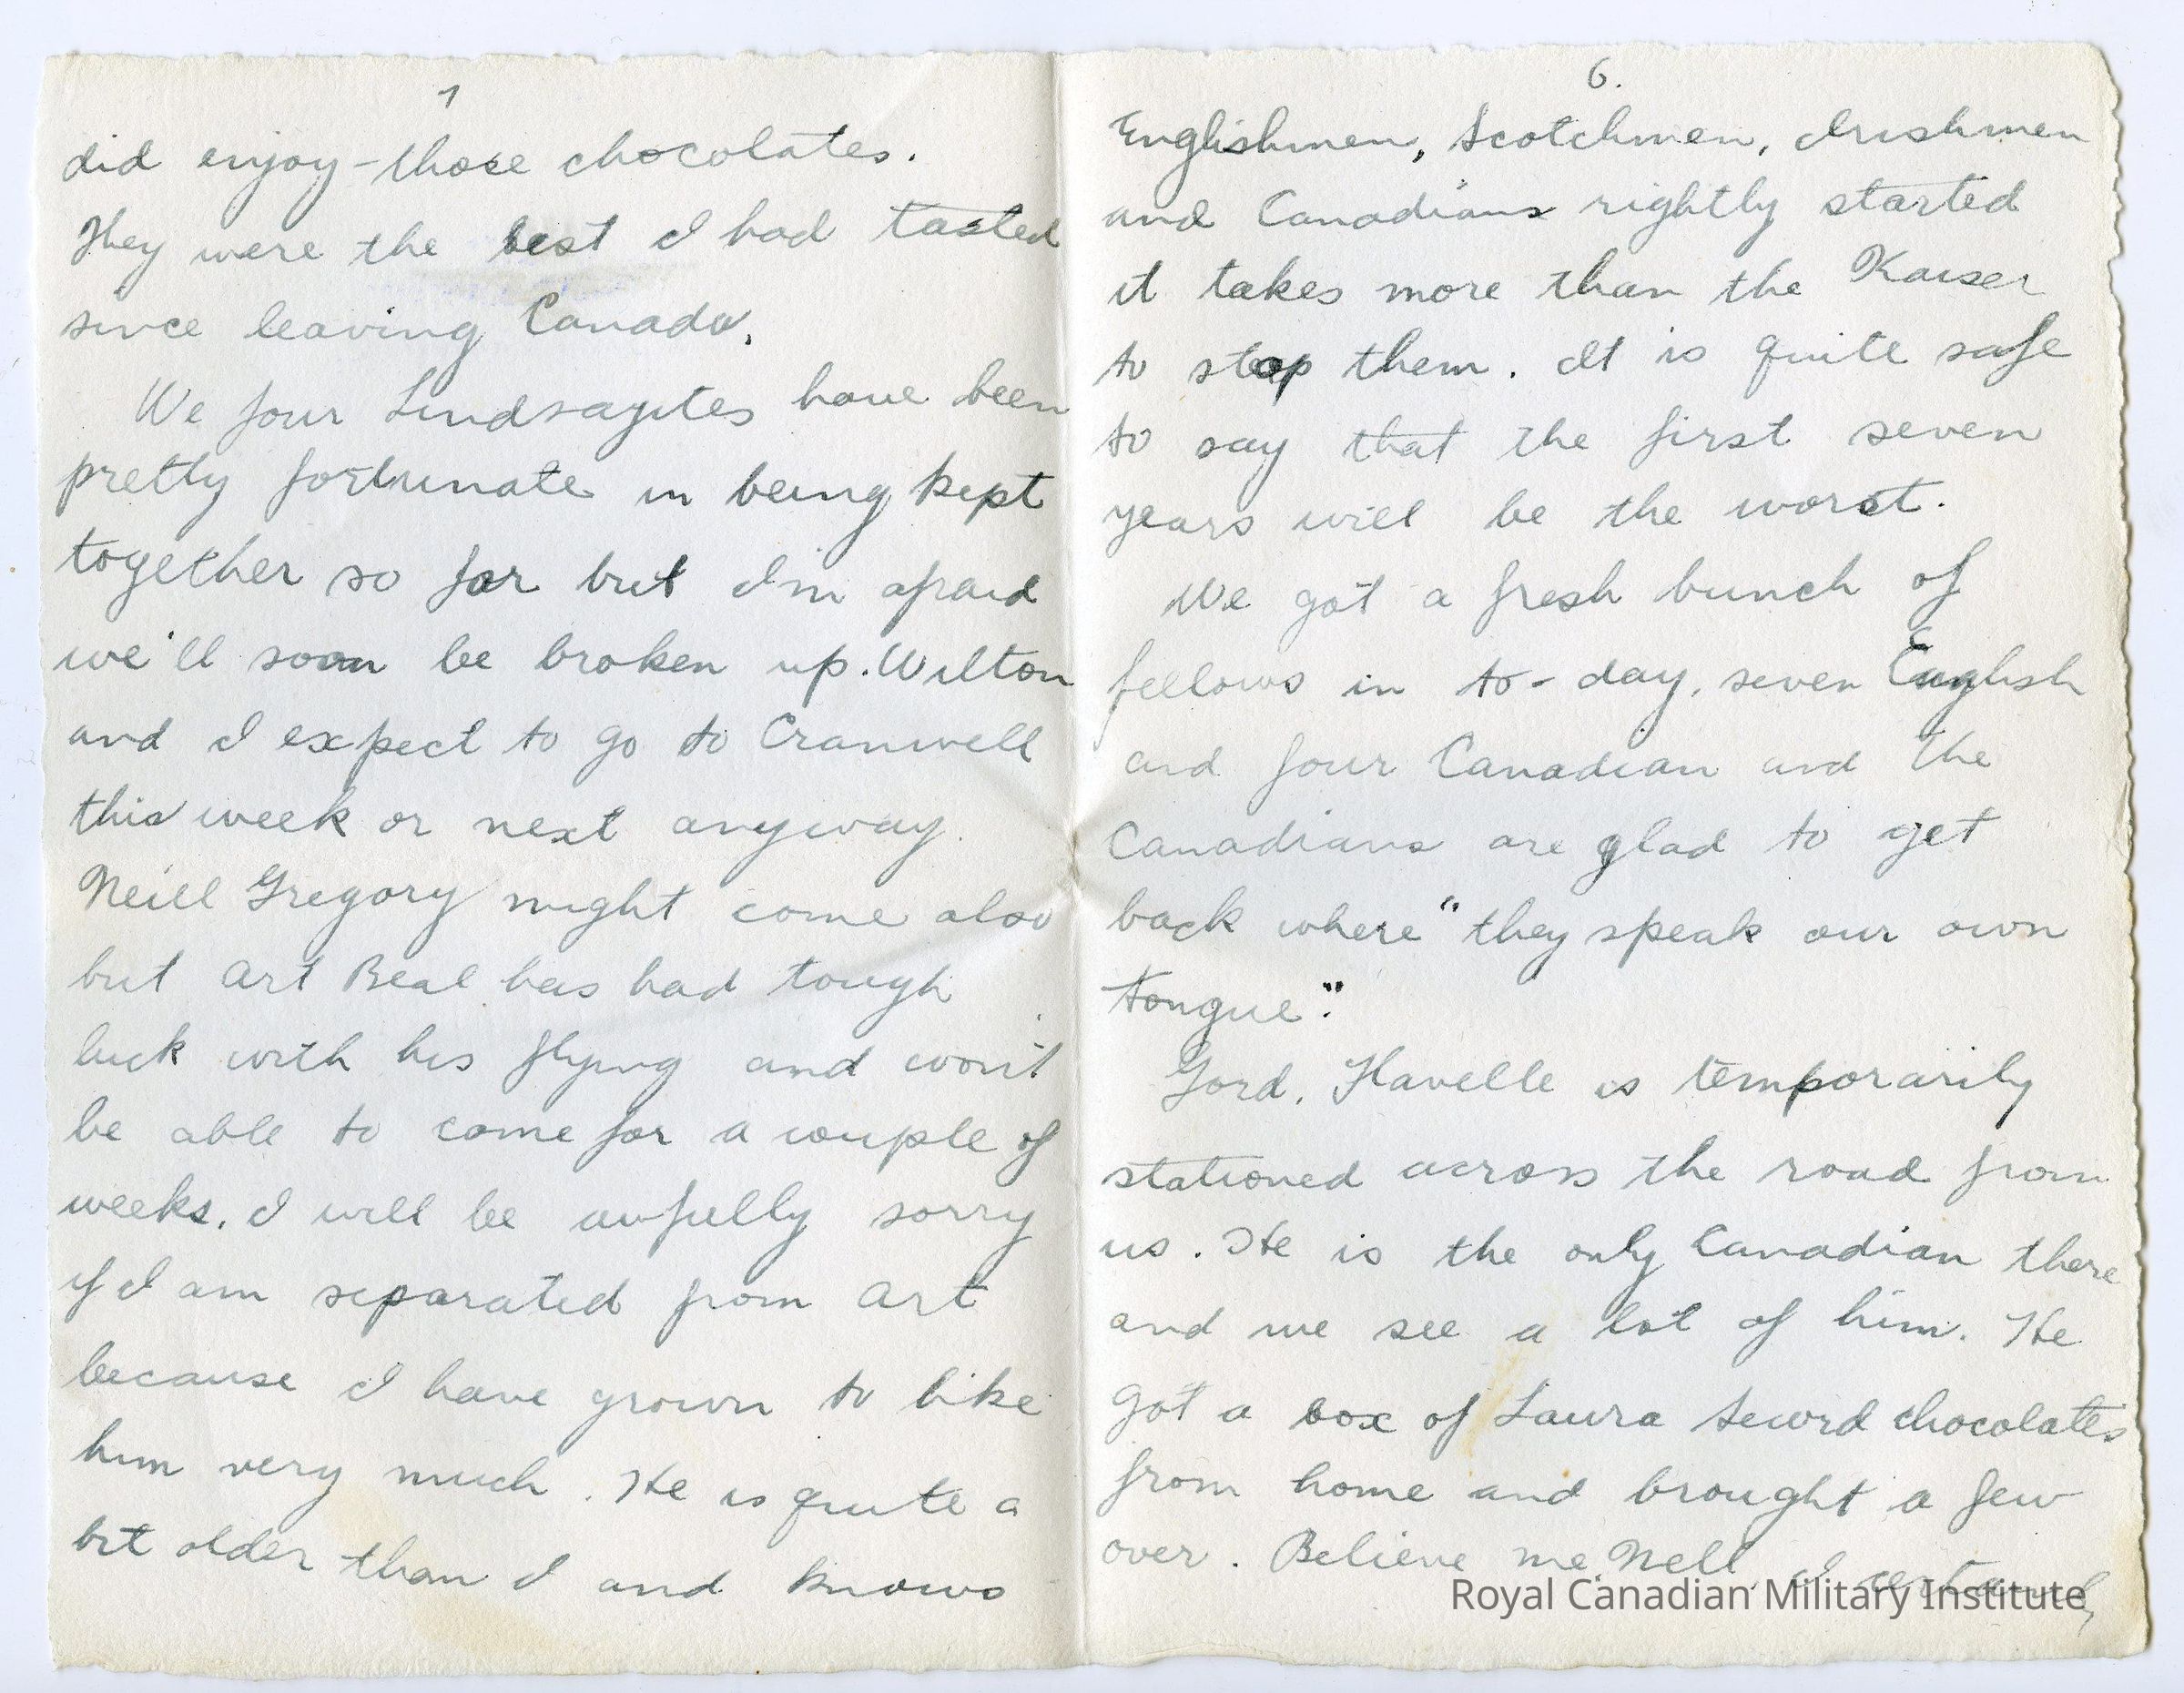 6.
Englishmen, Scotchmen, Irishmen
and Canadians rightly started
it takes more than the Kaiser
to stop them. It is quite safe
to say that the first seven
years will be the worst.
We got a fresh bunch of
fellows in to-day, seven English
and four Canadian and the
Canadians are glad to get
back where "they speak our own
tongue".
Gord. Flavelle is temporarily
stationed across the road from
us. He is the only Canadian there
and we see a lot of him. He
got a box of Laura Secord chocolates
from home and brought a few
over. Believe me Nell I certainly
7
did enjoy those chocolates.
They were the best I had tasted
since leaving Canada.
We four Lindsayites have been
pretty fortunate in being kept
together so far but I'm afraid
we'll soon be broken up. Wilton
and I expect to go to Cranwell
this week or next anyway.
Neill Gregory might come also
but Art Beal has had tough
luck with his flying and won't
be able to come for a couple of
weeks. I will be awfully sorry
if I am separated from Art
because I have grown to like
him very much. He is quite a
bit older than I and knows
Royal Canadian Military Institute